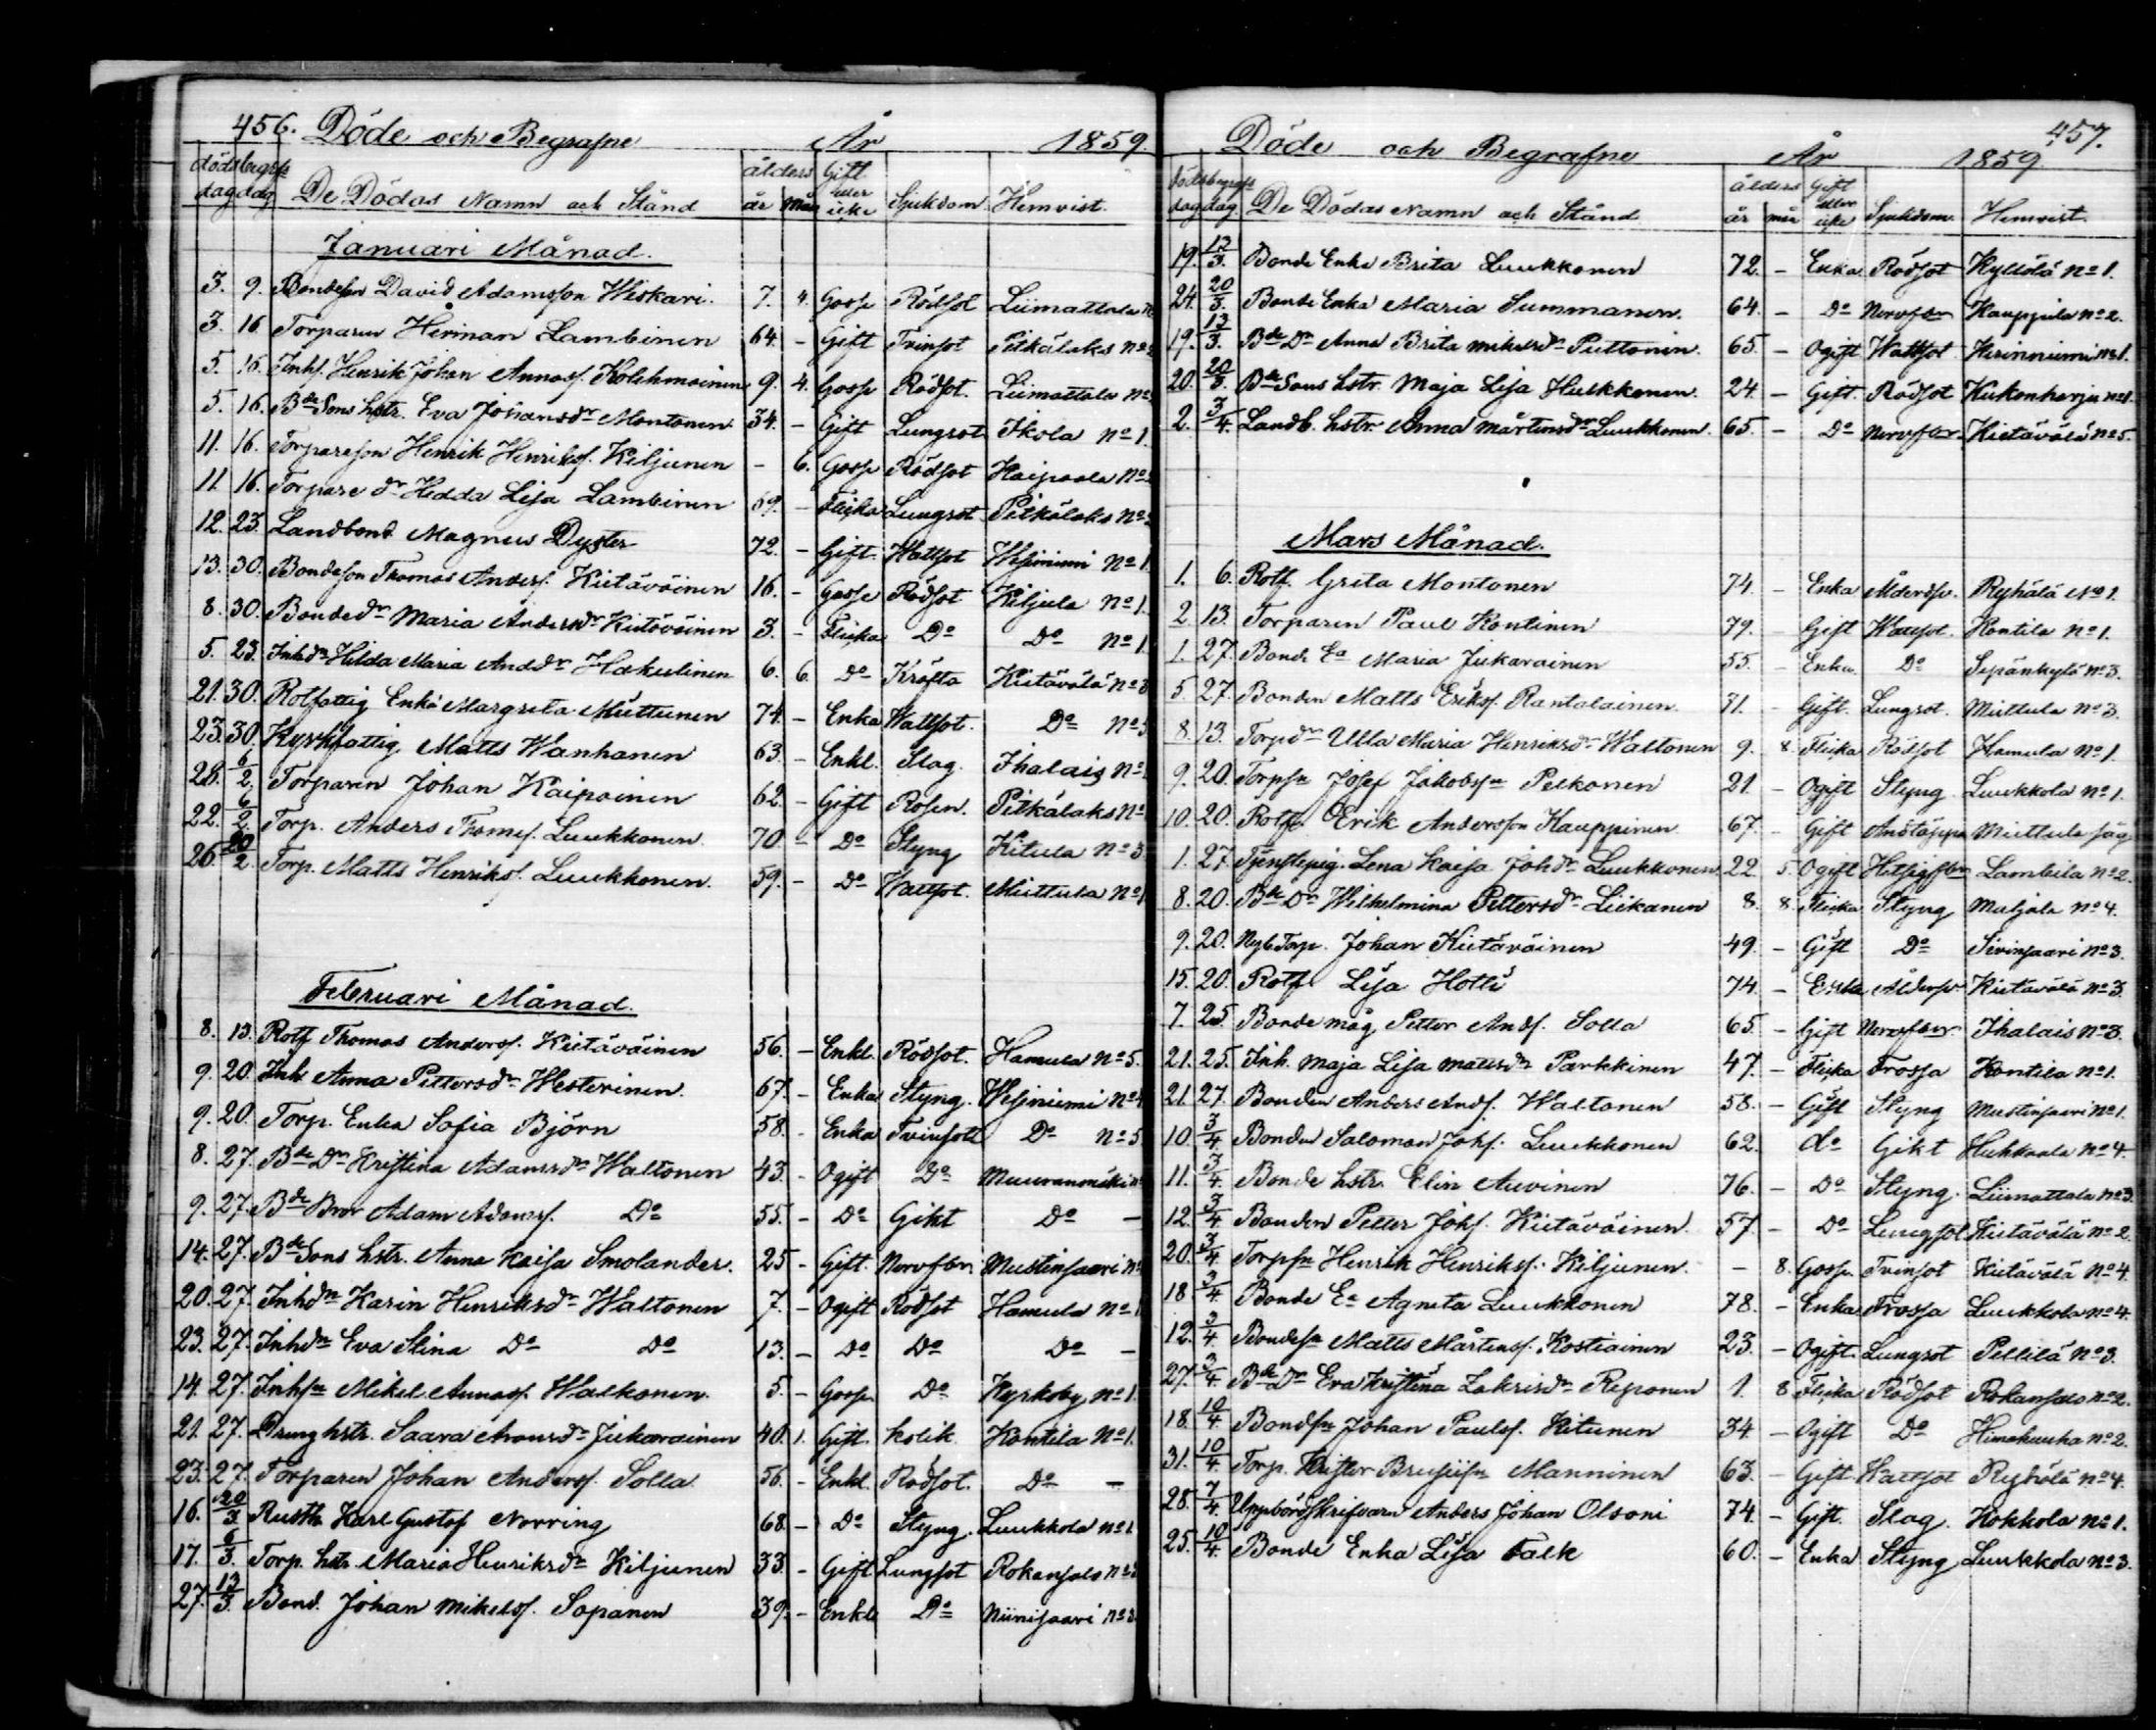 456. Döde och Begrafne År 1859
döds dag begrafs dag De Dödas Namn och Stånd ålders år mån Gift eller icke Sjukdom Hemvist.
Januari Månad.
3. 9. Bondeson David Adamsson Wiskari. 7. 4. Gosse Rödsot Liimattala
3. 16. Torparen Herman Lambinen 64. - Gift Tvinsot Pitkälaks No
5. 16. Inhs. Henrik Johan Annass. Kolehmainen 9. 4. Gosse Rödsot. Liimattala No
5. 16. Bde Sons hstr. Eva Johansdr Montonen 34. - Gift Lungsot Ikola No 1.
11. 16. Torpareson Henrik Henrikss. Kiljunen - 6. Gosse Rödsot Kaipaala No
11. 16. Torpare dr Hedda Lisa Lambinen 69. - Flicka Lungsot Pitkälaks No
12. 23. Landbond Magnus Dyster 72. - Gift. Wattsot No 1
13. 30. Bondeson Thomas Anderss. Kietäväinen 16. - Gosse Rödsot Kiljula No 1.
8. 30. Bondedr Maria Andersdr Kietäväinen 3. - Flicka Do Do No 1
5. 23. Inhdr Hilda Maria Anddr Hakulinen 6. 6. Do Kräfta Kietävälä No 3
21. 30. Rotfattig Enka Margreta Miettunen 74. - Enka Wattsot. Do No 3
23. 30. Kyrkfattig Matts Wanhanen 63. - Enkl. Slag. Ihalais No
28. 6/2. Torparen Johan Kaipainen 62. - Gift Rosen. Pitkälaks No
22. 6/2. Torp. Anders Thomss. Luukkonen. 70. - Do Styng Kitula No 3
26. 20/2. Torp. Matts Henrikss. Luukkonen. 59. - Do Wattsot. Miettula No 1
Februari Månad.
8. 13. Rotf Thomas Anderss. Kietäväinen 56. - Enkl. Rödsot. Hamula No 5.
9. 20. Inh Anna Pettersdr Westerinen. 67. - Enka Styng. No 4
9. 20. Torp. Enka Sofia Björn 58. - Enka Tvinsot Do No 5
8. 27. Bde Dr Kristina Adamsdr Waltonen 43. - Ogift Do
9. 27. Bde Bror Adam Adamss. Do 55. - Do Gikt Do -
14. 27. Bde Sons hstr. Anna Kaisa Smolander. 25 - Gift. Nervfbr. Mustinsaari No
20. 27. Inhdr Karin Henriksdr Waltonen 7. - Ogift Rödsot Hamula No 1
23. 27. Inhdr Eva Stina Do Do 13. - Do Do Do -
14. 27. Inhsn Mikel Annass. Walkonen. 5. - Gosse Do Kyrkoby No 1.
21. 27. hstr. Saara Jukarainen 40. 1. Gift. Kolik. Kontila No 1.
23. 27. Torparen Johan Anderss. Solla 56. - Enkl. Rödsot. Do -
16. 20/3 Rusth. Karl Gustaf Norring 68. - Do Styng. Luukkola No 1.
17. 6/3. Torp. hstr. Maria Henriksdr Kiljunen 33. - Gift Lungsot Rokansalo No
27. 13/3. Bond. Johan Mikelss. Sapanen 39. - Enkl Do Niinisaari No 3
Döde och Begrafne År 1859 457.
döds dag begrafs dag De Dödas Namn och Stånd ålders år mån Gift eller icke Sjukdom. Hemvist.
19. 13/3. Bonde Enka Brita Luukkonen 72. - Enka Rödsot Kyllölä No 1.
24. 20/3. Bonde Enka Maria Summanen. 64. - Do Nervfbr Kauppila No 2.
19. 13/3. Bde Dr Anna Brita Mikelsdr Puttonin. 65. - Ogift Wattsot No 1.
20. 20/3. Bde Sons hstr. Maja Lisa Hulkkonen. 24. - Gift. Rödsot Kukonharju No 1.
2. 3/4. Landb. hstr. Anna Mårtensdr Luukkonen. 65. - Do Nervfbr. Kietävälä No 5.
Mars Månad.
1. 6. Rotf. Greta Montonen 74. - Enka Ålderdsv. Ryhälä No 1.
2. 13. Torparen Paul Kontinen 79. - Gift Wattsot. Kontila No 1.
1. 27. Bonde Ea Maria Jukarainen 55. - Enka. Do Sepänkylä No 3.
5. 27. Bonden Matts Erikss. Rantalainen. 71. - Gift. Lungsot. Miettula No 3.
8. 13. Torpdr Ulla Maria Henriksdr Waltonen 9. 8. Flicka Rödsot Hamula No 1.
9. 20. Torpsn Josef Jakobsn Pelkonen 21. - Ogift Styng Luukkola No 1.
10. 20. Rotf. Erik Andersson Kauppinen 67. - Gift Andtäppa Miettula
1. 27. Tjenstepig. Lena Kaisa Johdr Luukkonen 22. 5. Ogift Hitsigfbr Lambila No 2.
8. 20. Bde Dr Wilhelmina Pettersdr Liikanen 8. 8. Flicka Styng Muljala No 4.
9. 20. Nyb Torp. Johan Kietäväinen 49. - Gift Do Sivinsaari No 3.
15. 20. Rotf Lisa Hotti 74. - Enka Ålderdsv. Kietävälä No 3.
7. 25. Bonde måg Petter Ands. Solla 65. - Gift Nervfbr. Ihalais No 3.
21. 25. Inh. Maja Lisa Matsdr Parkkinen 47. - Flicka Frossa Kontila No 1.
21. 27. Bonden Anders Ands. Waltonen 58. - Gift Styng Mustinsaari No 1.
10. 3/4. Bonden Saloman Johs. Luukkonen 62. do Gikt Huhkaala No 4.
11. 3/4. Bonde hstr. Elin Auvinen 76. - Do Styng. Liimattala No 3.
12. 3/4 Bonden Petter Johs. Kietäväinen. 57. - Do Lungsot Kietävälä No 2.
20. 3/4 Torpsn Henrik Henrikss. Kiljunen. - 8. Gosse. Tvinsot Kietävälä No 4.
18. 3/4 Bonde Ea Agneta Luukkonen 78. - Enka Frossa Luukkola No 4.
12. 3/4. Bondesn Matts Mårtenss. Kostiainen 23. - Ogift. Lungsot Pellilä No 3.
27. 3/4. Bde Dr Eva Kristina Zakrisdr Reponen 1. 8 Flicka Rödsot Rokansalo No 2.
18. 10/4 Bondsn Johan Paulss. Kitunen 34. - Ogift Do Himahuuha No 2.
31. 10/4. Torp. Krister Manninen 63. - Gift. Wattsot Ryhälä No 4.
28. 7/4. Uppbördsskrifvaren Anders Johan Olsoni 74. - Gift. Slag. Kokkola No 1.
25. 10/4. Bonde Enka Lisa Falk 60. - Enka Styng Luukkola No 3.